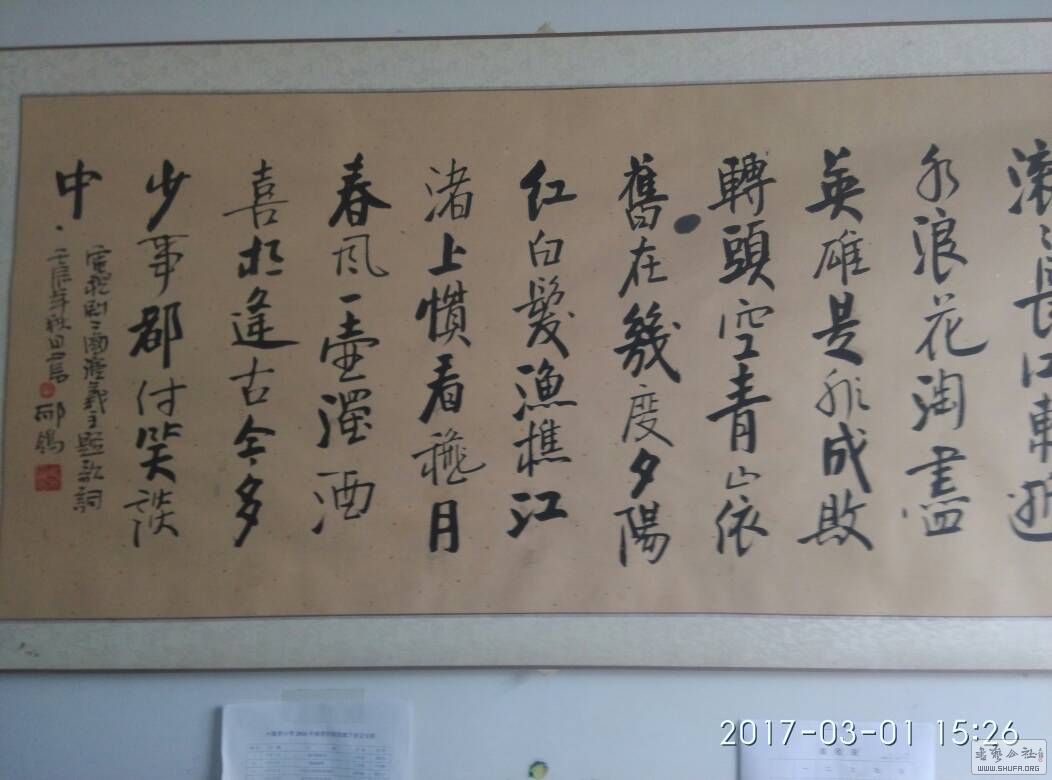 滚〻長江東逝
水浪花淘盡
英雄是非成敗
轉頭空青山依
舊在幾度夕陽
红白髮漁樵江
渚上慣看穐月
春风一壺濁酒
喜相逢古今多
少事都付笑談
中
電視剧三國演義主題歌詞
壬辰年秋日書
邢
2017-03-01 15:26
書藝公社
WWW.SHUFA.ORG